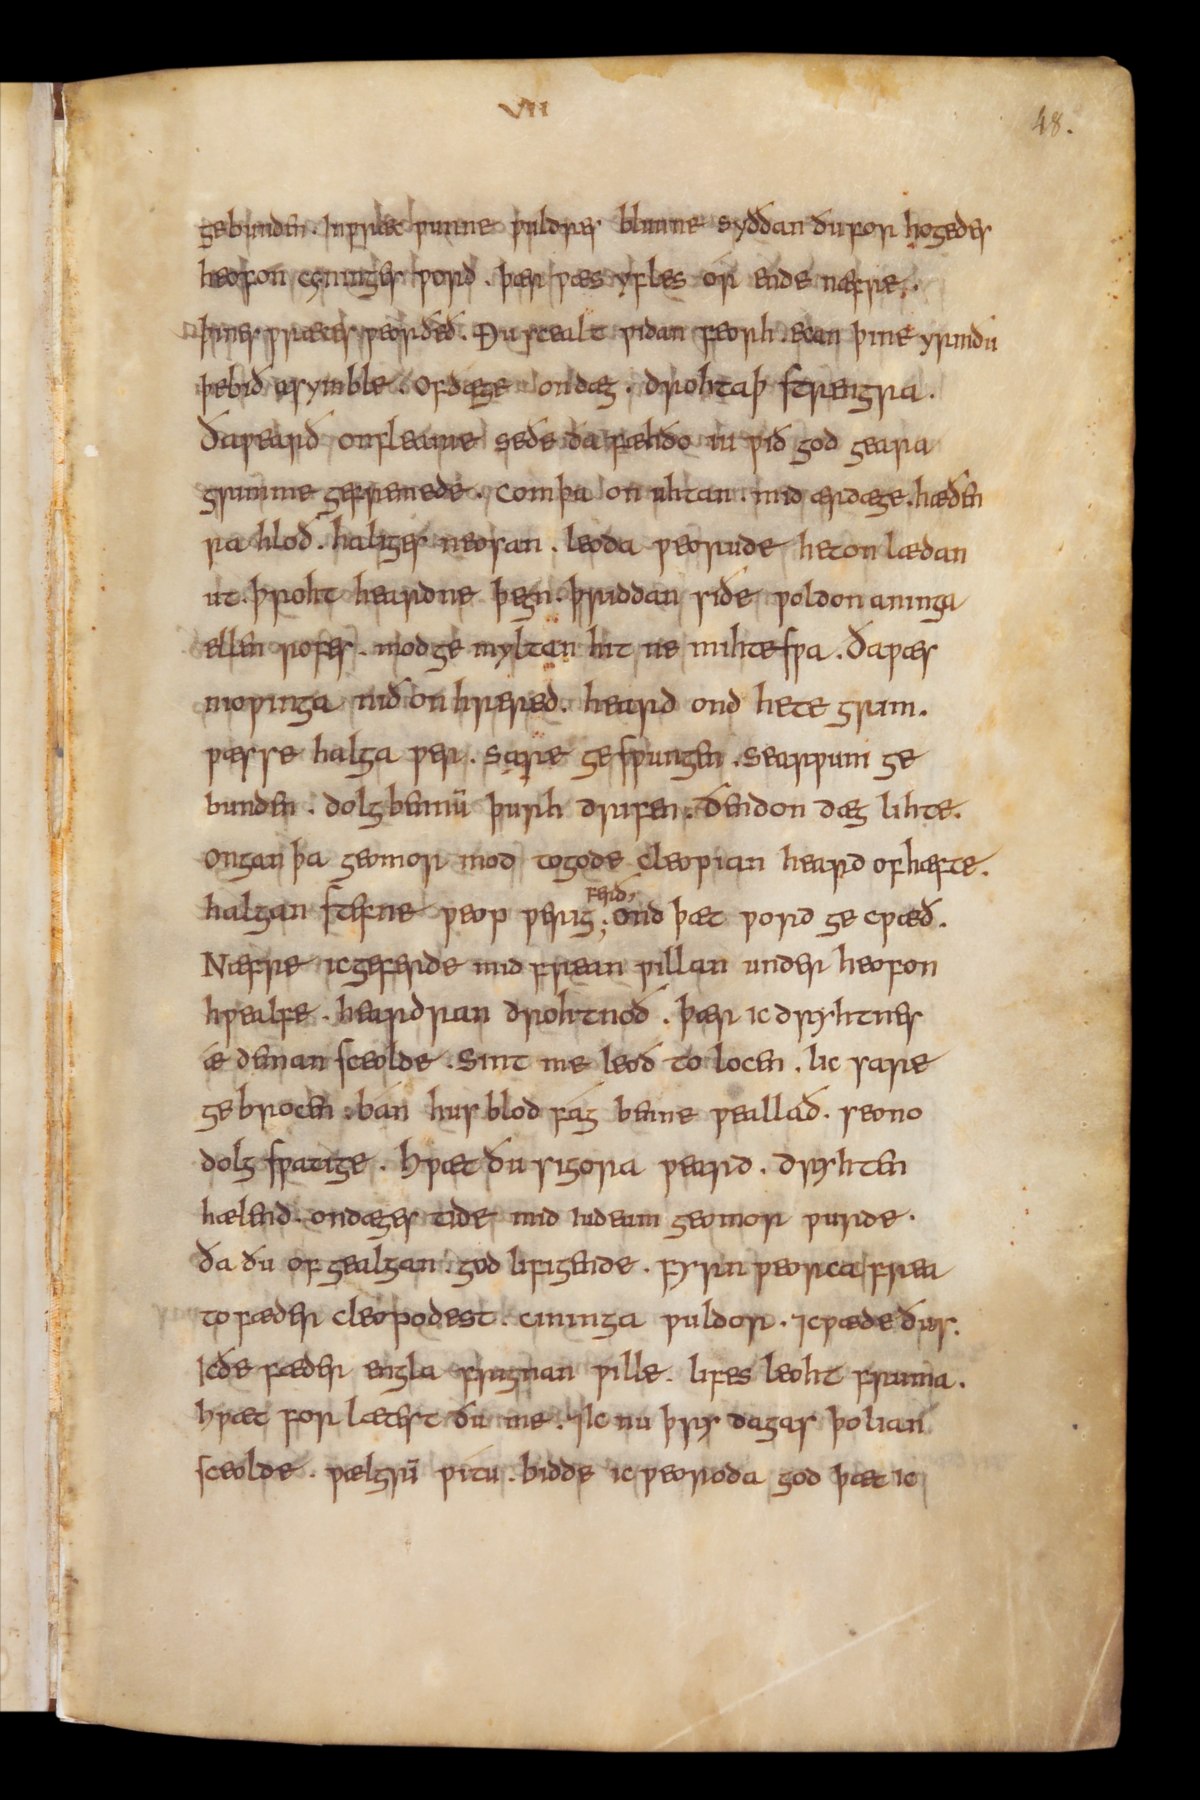 VII
48.
gebunden . in wræc wunne wuldres blunne syððan ðu forhogedes
heofoncyninges word . þær wæs yfles ór ende næfre .
þines wræces weorðeð . Ðu scealt widan feorh . ecan þine yrmðu
þe bið a symble . of dæge on dæg . drohtaþ strengra .
Ða wearð on fleame se ðe ða fæhðo iu wið god geara
grimme gefremede . com þa on uhtan . mid ærdæge . hæðen
ra hloð . haliges neosan . leoda weorude heton lædan
ut . þrohtheardne þegn . þriddan siðe woldon aninga
ellenrofes . mod gemyltan hit ne mihte swa . Ða wæs
niowinga nið onhrered . heard ond hetegrim .
wæs se halga wer . sáre geswungen . searwum ge
bunden . dolg bennū þurhdrifen . ðendon dæg lihte .
Ongan þa geomormod to gode cleopian heard of hæfte .
halgan stefne weop werig ferð ; ond þæt word gecwæð .
Næfre ic geferde mid frean willan under heofon
hwealfe . heardran drohtnoð . þær ic dryhtnes
ǽ deman sceolde . Sint me leoð tolocen . lic sare
gebrocen . bán hus blod fág benne weallað . seono
dolg swatige . Hwæt ðu sigora weard . dryhten
hælend . on dæges tide mid iudeum geomor wurde .
ða ðu of gealgan . god lifigende . fyrnweorca frea
to fæder cleopodest . cininga wuldor . ⁊ cwæde ðus .
Ic ðe fæder engla frignan wille . lifes leohtfruma .
Hwæt forlætest ðu me . ⁊ ic nu þrys dagas þolian
sceolde . wælgrī witu . bidde ic weoroda god þæt ic